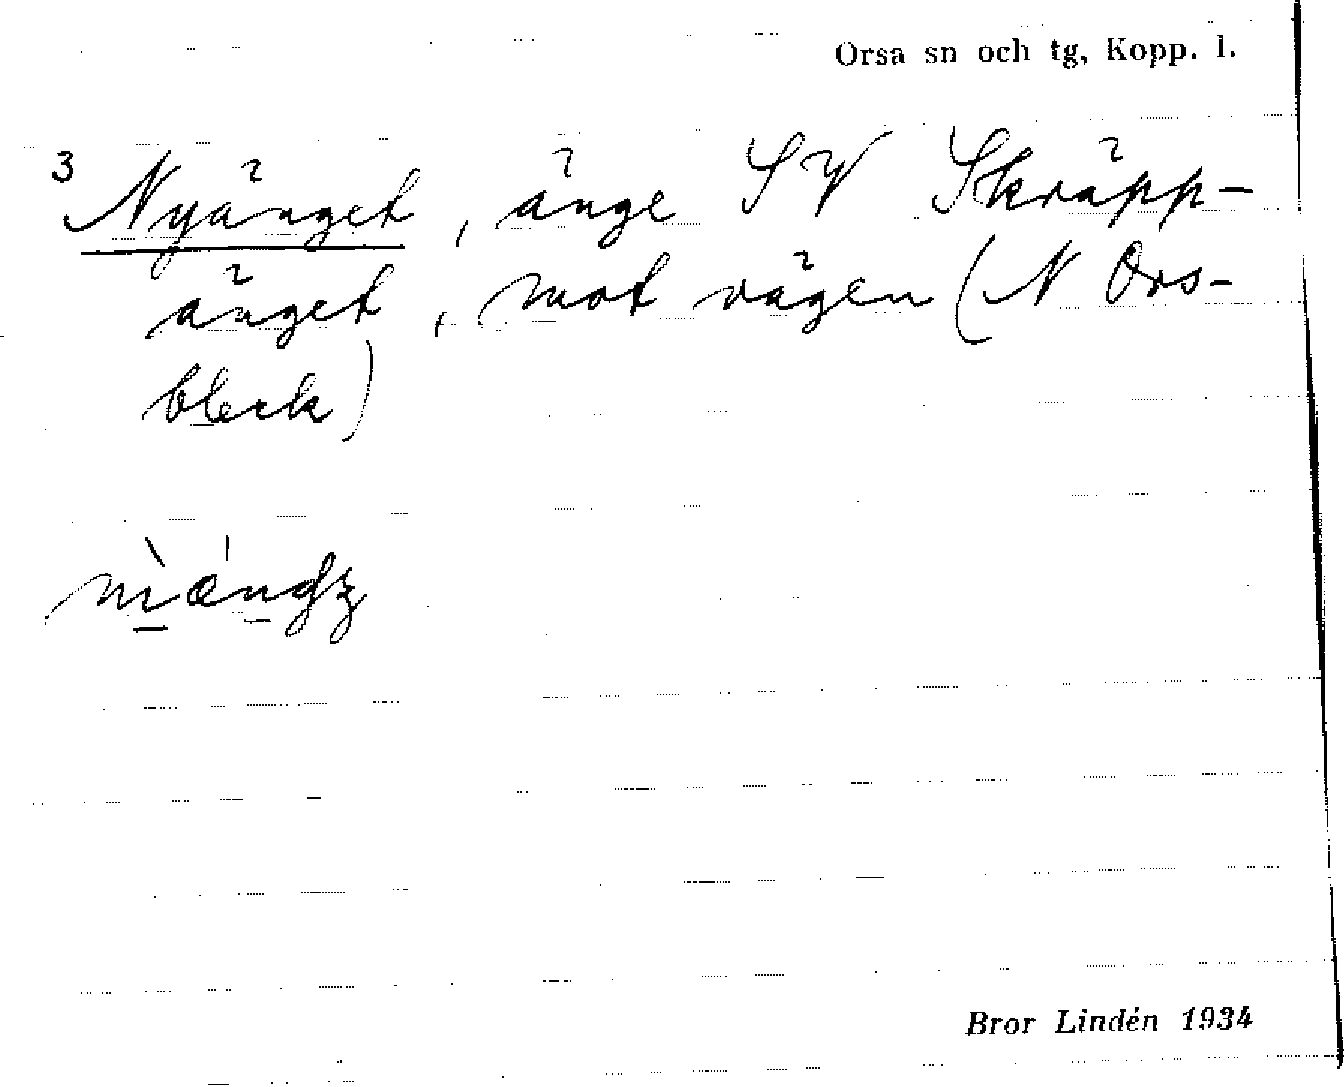 Orsa sn och tg, Kopp. l.
3 Nyänget, änge SV Skräpp-
änget, mot vägen (N Ors-
bleck)
Bror Lindén 1934